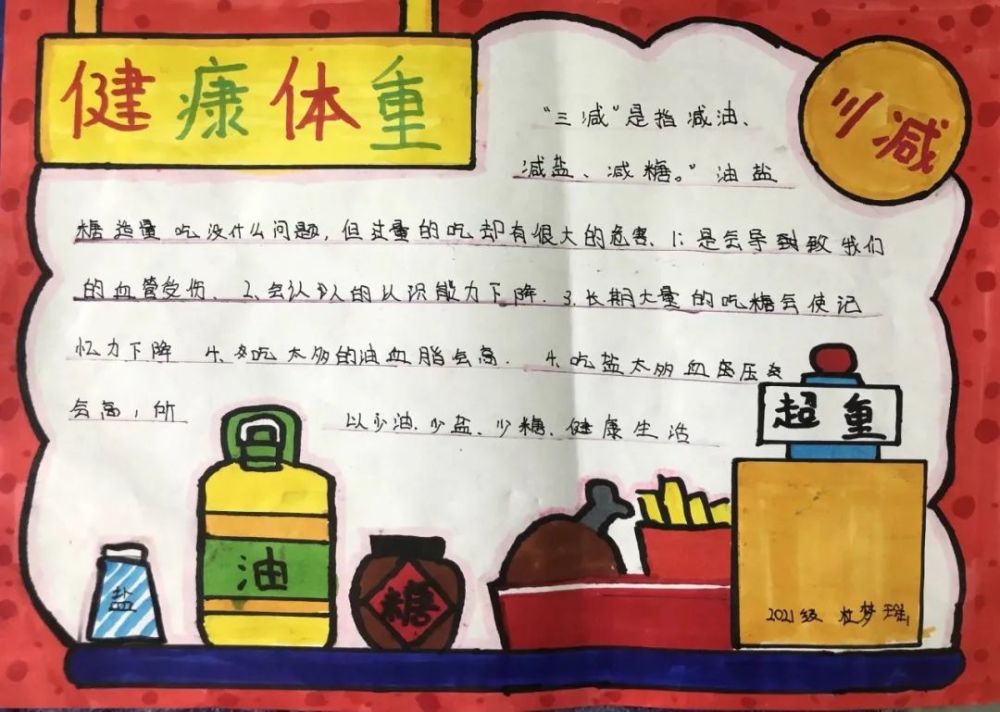 健康体重
川减
"三减"是指减油、
减盐、减糖。"油盐
糖适量吃没什么问题,但过量的吃却有很大的危害、1:是会导到致我们
的血管受伤. 2、会认认的认识能力下降. 3.长期大量的吃糖会使记
忆力下降 4.多吃太多的油血脂会高. 4.吃盐太多血压
会高,所 以少油.少盐、少糖、健康生活
超重
盐
油
糖
2021级 杜梦瑶